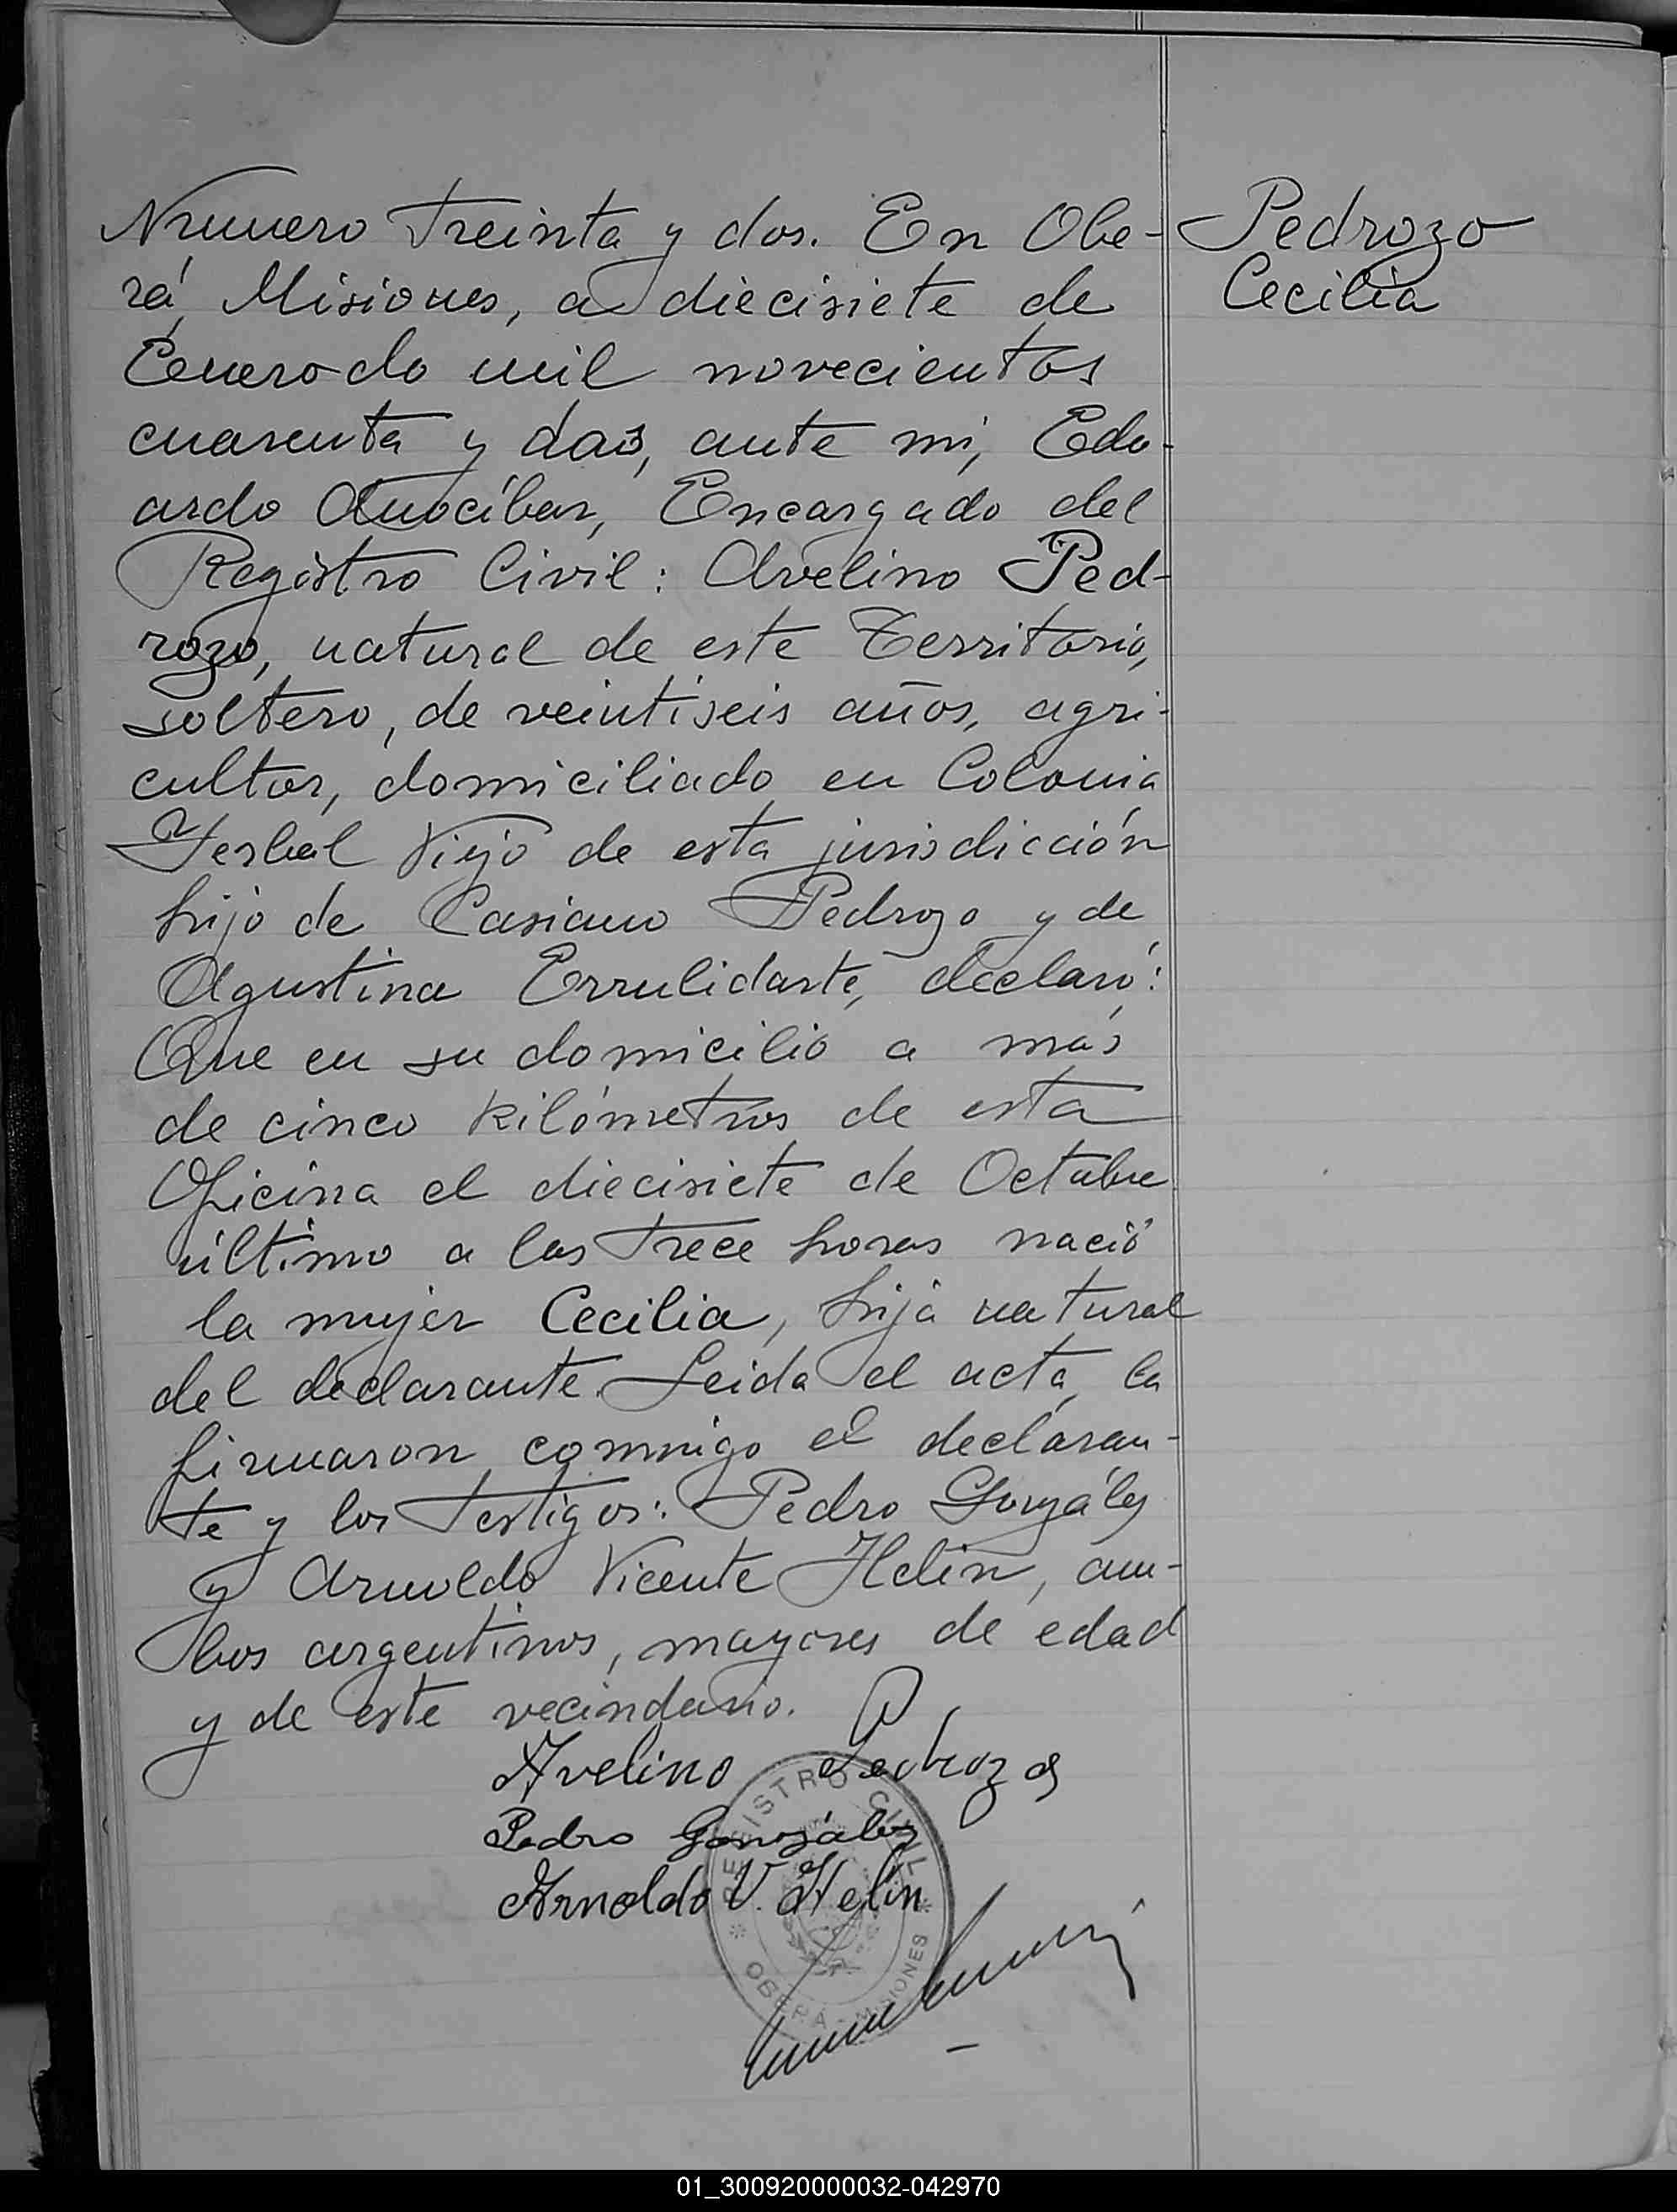 Número treinta y dos. En Obe-
rá, Misiones, a diecisiete de
Enero de mil novecientos
cuarenta y dos, ante mi, Edu-
ardo Anocíbar, Encargado del
Registro Civil: Avelino Ped-
rozo, natural de este Territorio,
soltero, de veintiseis años, agri-
cultor, domiciliado en Colonia
Yerbal Viejo de esta jurisdicción
hijo de Casiano Pedrozo y de
Agustina Errulidarte, declaró:
Que en su domicilio a más
de cinco kilómetros de esta
Oficina el diecisiete de Octubre
último a las trece horas nació
la mujer Cecilia, hija natural
del declarante. Leida el acta, la
firmaron conmigo el declaran-
te y los testigos: Pedro González
y Arnoldo Vicente Helin, am-
bos argentinos, mayores de edad
y de este vecindario.
Pedrozo
Cecilia
Avelino Pedrozo
Pedro González
Arnoldo V. Helin
REGISTRO CIVIL
* OBERÁ - MISIONES *
01_300920000032-042970